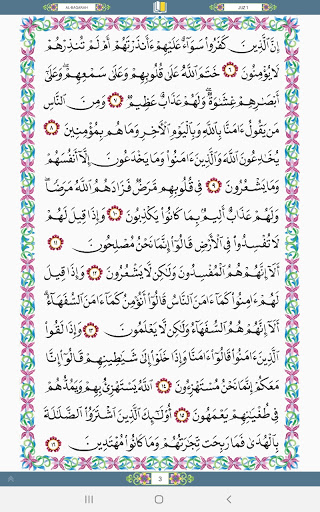 AL-BAQARAH
JUZ 1
إِنَّ الَّذِينَ كَفَرُوا سَوَاءٌ عَلَيْهِمْ ءَأَنذَرْتَهُمْ أَمْ لَمْ تُنذِرْهُمْ
لَا يُؤْمِنُونَ ٦ خَتَمَ اللَّهُ عَلَىٰ قُلُوبِهِمْ وَعَلَىٰ سَمْعِهِمْ ۖ وَعَلَىٰ
أَبْصَٰرِهِمْ غِشَٰوَةٌ ۖ وَلَهُمْ عَذَابٌ عَظِيمٌ ٧ وَمِنَ النَّاسِ
مَن يَقُولُ ءَامَنَّا بِاللَّهِ وَبِالْيَوْمِ الْأَخِرِ وَمَا هُم بِمُؤْمِنِينَ ٨
يُخَٰدِعُونَ اللَّهَ وَالَّذِينَ ءَامَنُوا وَمَا يَخْدَعُونَ إِلَّا أَنفُسَهُمْ
وَمَا يَشْعُرُونَ ٩ فِي قُلُوبِهِم مَّرَضٌ فَزَادَهُمُ اللَّهُ مَرَضًا ۖ
وَلَهُمْ عَذَابٌ أَلِيمٌ بِمَا كَانُوا يَكْذِبُونَ ١٠ وَإِذَا قِيلَ لَهُمْ
لَا تُفْسِدُوا فِي الْأَرْضِ قَالُوا إِنَّمَا نَحْنُ مُصْلِحُونَ ١١
أَلَا إِنَّهُمْ هُمُ الْمُفْسِدُونَ وَلَٰكِن لَّا يَشْعُرُونَ ١٢ وَإِذَا قِيلَ
لَهُمْ ءَامِنُوا كَمَا ءَامَنَ النَّاسُ قَالُوا أَنُؤْمِنُ كَمَا ءَامَنَ السُّفَهَاءُ ۗ
أَلَا إِنَّهُمْ هُمُ السُّفَهَاءُ وَلَٰكِن لَّا يَعْلَمُونَ ١٣ وَإِذَا لَقُوا
الَّذِينَ ءَامَنُوا قَالُوا ءَامَنَّا وَإِذَا خَلَوْا إِلَىٰ شَيَٰطِينِهِمْ قَالُوا إِنَّا
مَعَكُمْ إِنَّمَا نَحْنُ مُسْتَهْزِءُونَ ١٤ اللَّهُ يَسْتَهْزِئُ بِهِمْ وَيَمُدُّهُمْ
فِي طُغْيَٰنِهِمْ يَعْمَهُونَ ١٥ أُولَٰئِكَ الَّذِينَ اشْتَرَوُا الضَّلَٰلَةَ
بِالْهُدَىٰ فَمَا رَبِحَت تِّجَٰرَتُهُمْ وَمَا كَانُوا مُهْتَدِينَ ١٦
3